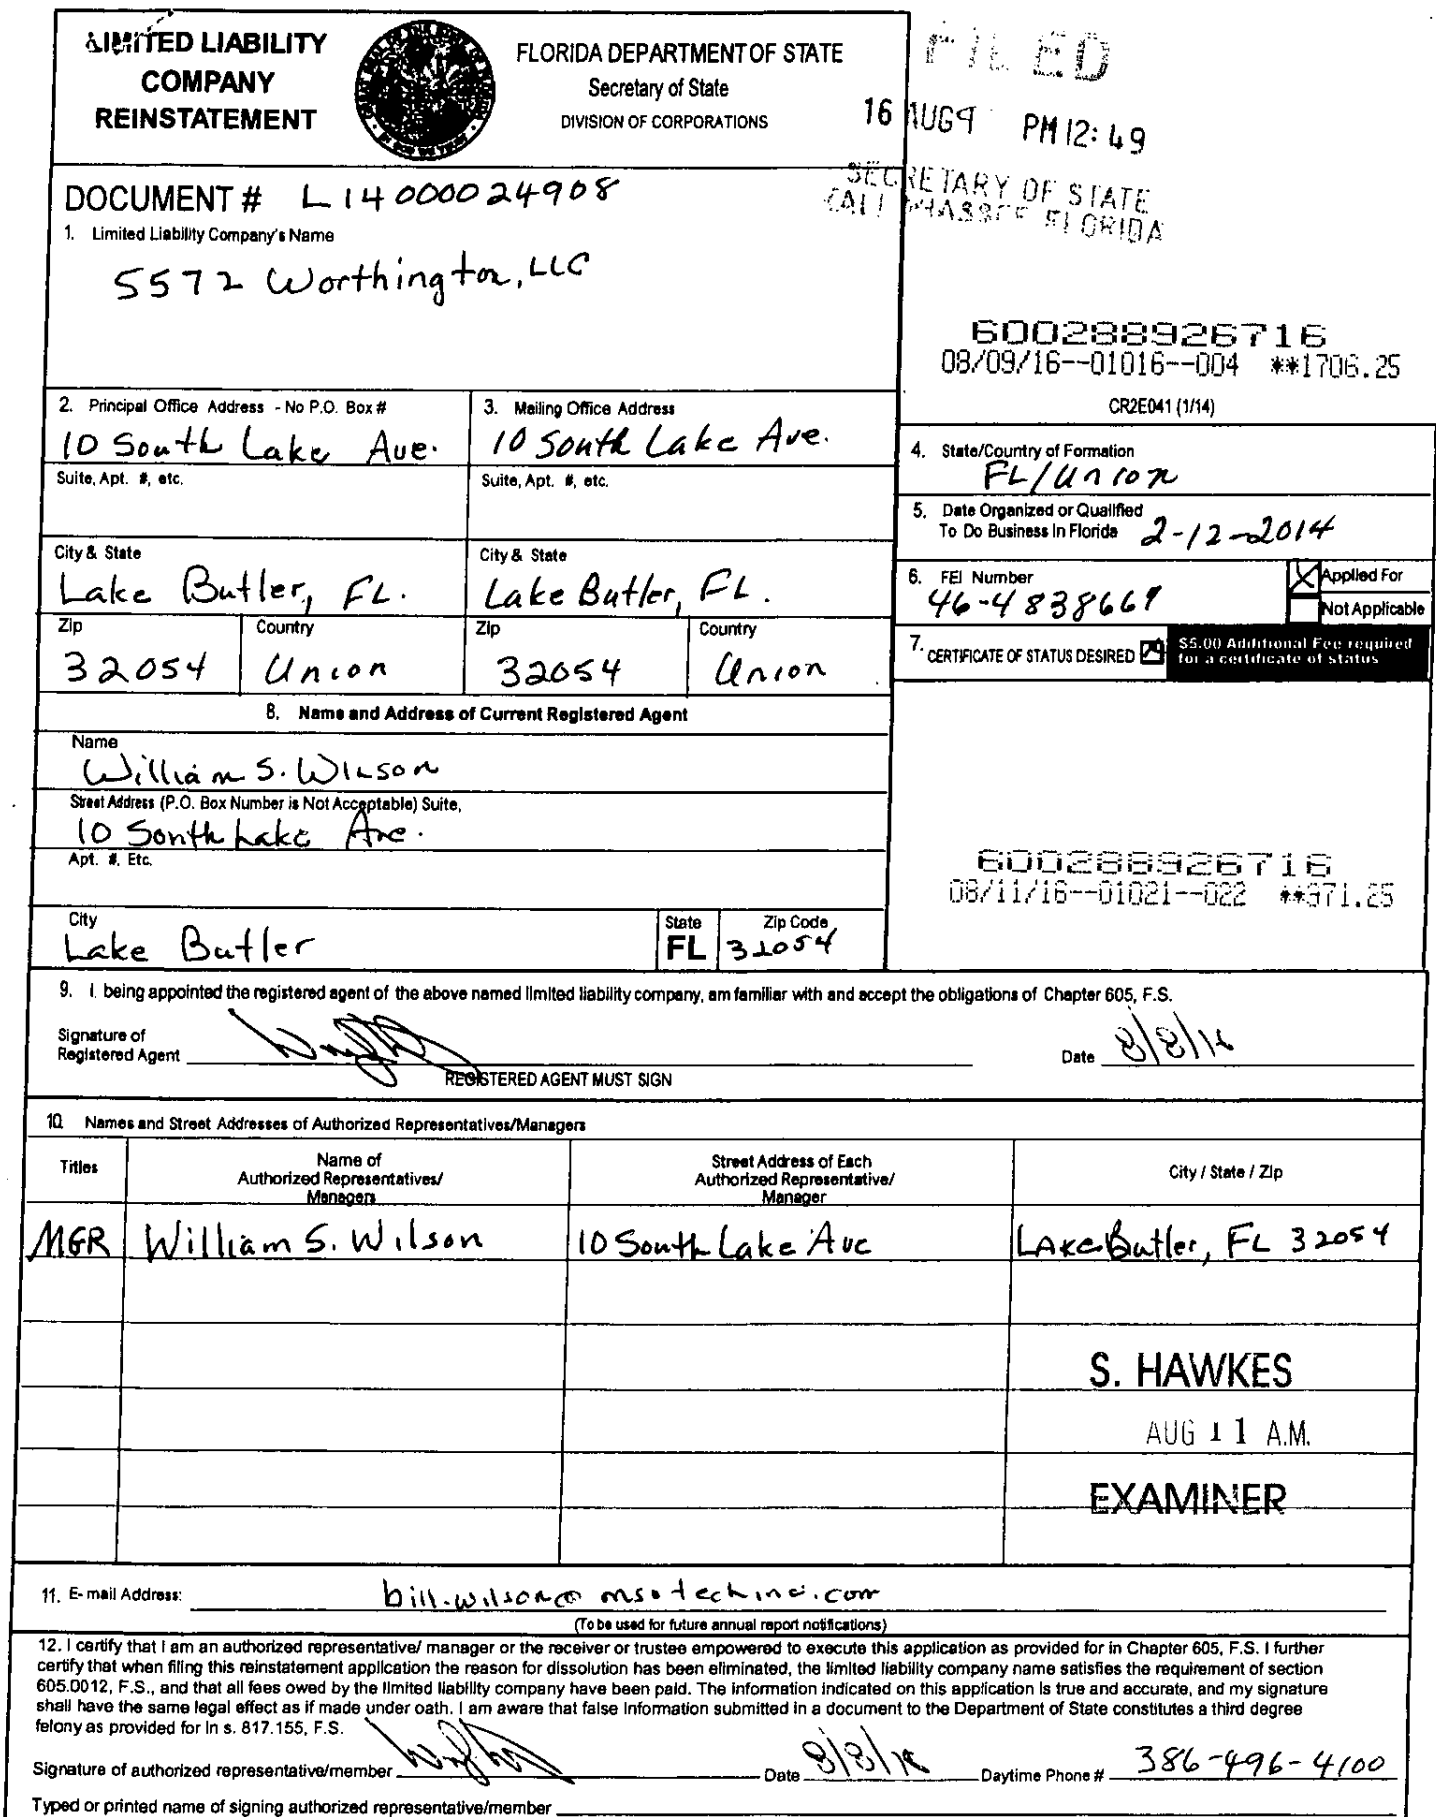 LIMITED LIABILITY
COMPANY
REINSTATEMENT
FLORIDA DEPARTMENT OF STATE
Secretary of State
DIVISION OF CORPORATIONS
FILED
16 AUG 9 PM 12:49
SECRETARY OF STATE
TALLAHASSEE FLORIDA
DOCUMENT # L14000024908
1. Limited Liability Company's Name
5572 Worthington, LLC
600288926716
08/09/16--01016--004 **1706.25
CR2E041 (1/14)
2. Principal Office Address - No P.O. Box #
10 South Lake Ave.
3. Mailing Office Address
10 South Lake Ave.
Suite, Apt. #, etc.
Suite, Apt. #, etc.
City & State
Lake Butler, FL.
City & State
Lake Butler, FL.
Zip
32054
Country
Union
Zip
32054
Country
Union
4. State/Country of Formation
FL/Union
5. Date Organized or Qualified
To Do Business in Florida 2-12-2014
6. FEI Number
46-4838669
Applied For
Not Applicable
7. CERTIFICATE OF STATUS DESIRED
$5.00 Additional Fee required
for a certificate of status
8. Name and Address of Current Registered Agent
Name
William S. Wilson
Street Address (P.O. Box Number is Not Acceptable) Suite,
10 South Lake Ave.
Apt. #, Etc.
City
Lake Butler
State
FL
Zip Code
32054
600288926716
08/11/16--01021--022 **371.25
9. I, being appointed the registered agent of the above named limited liability company, am familiar with and accept the obligations of Chapter 605, F.S.
Signature of
Registered Agent
Date 8/8/16
REGISTERED AGENT MUST SIGN
10. Names and Street Addresses of Authorized Representatives/Managers
Titles
Name of
Authorized Representatives/
Managers
Street Address of Each
Authorized Representative/
Manager
City / State / Zip
MGR William S. Wilson 10 South Lake Ave Lake Butler, FL 32054
S. HAWKES
AUG 11 A.M.
EXAMINER
11. E-mail Address: bill.wilson@msotechinc.com
(To be used for future annual report notifications)
12. I certify that I am an authorized representative/ manager or the receiver or trustee empowered to execute this application as provided for in Chapter 605, F.S. I further
certify that when filing this reinstatement application the reason for dissolution has been eliminated, the limited liability company name satisfies the requirement of section
605.0012, F.S., and that all fees owed by the limited liability company have been paid. The information indicated on this application is true and accurate, and my signature
shall have the same legal effect as if made under oath. I am aware that false information submitted in a document to the Department of State constitutes a third degree
felony as provided for in s. 817.155, F.S.
Signature of authorized representative/member
Date 8/8/16
Daytime Phone # 386-496-4100
Typed or printed name of signing authorized representative/member